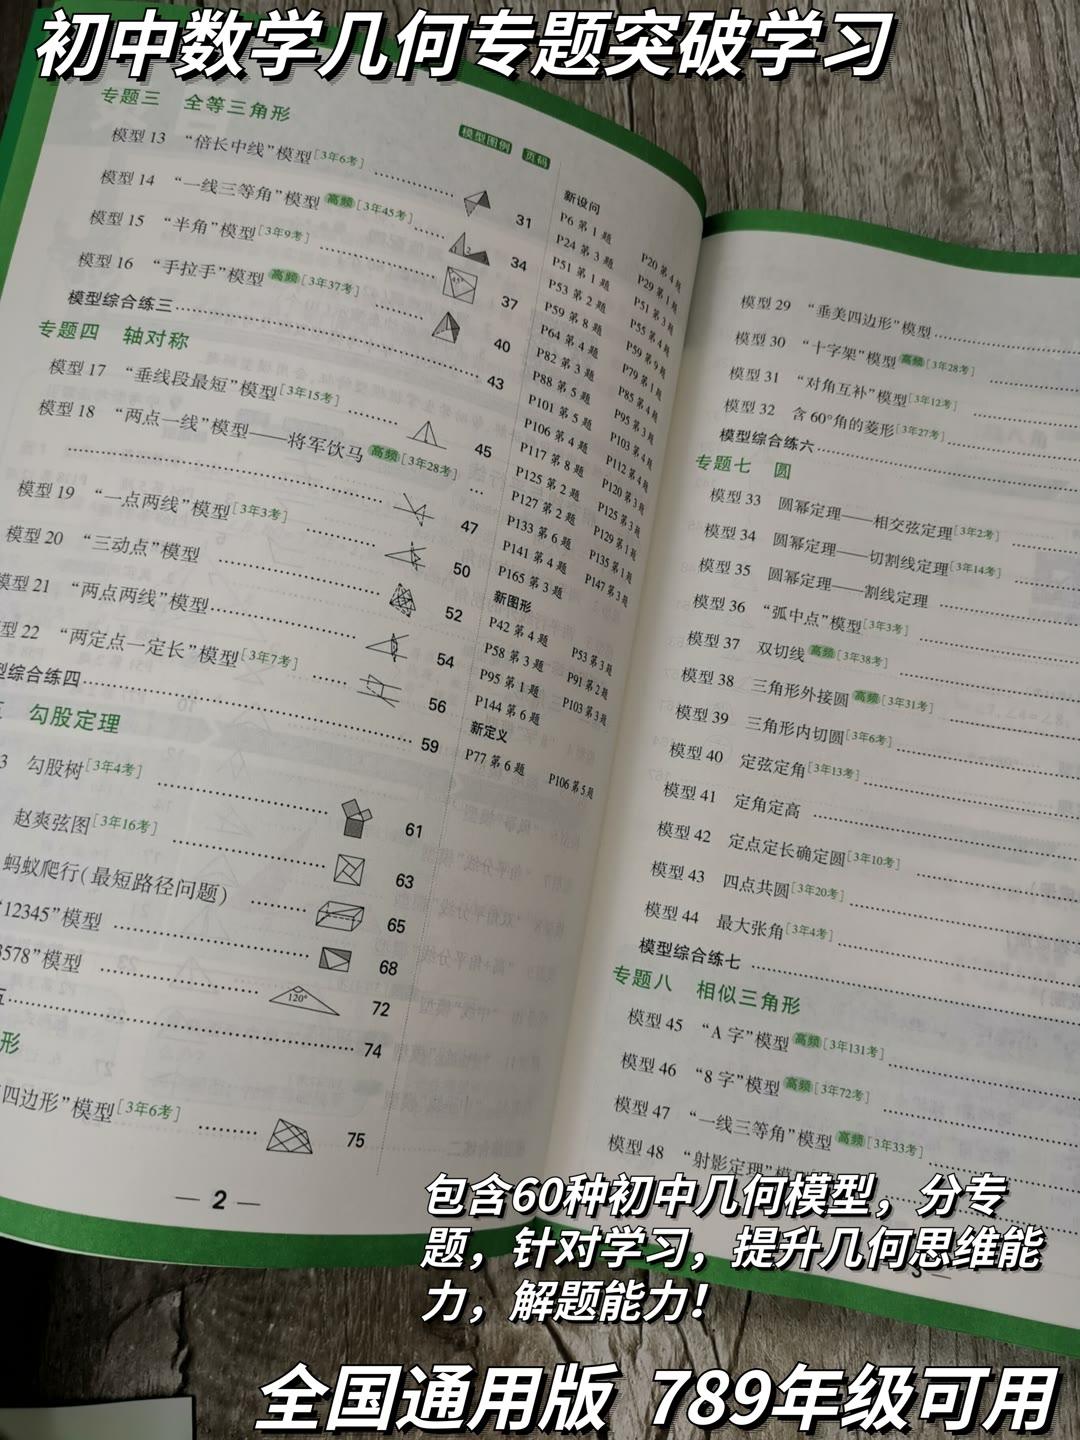 初中数学几何专题突破学习
专题三 全等三角形
模型图例 页码
模型 13 “倍长中线”模型[3年6考] 31
模型 14 “一线三等角”模型 高频 [3年45考] 34
模型 15 “半角”模型[3年9考] 37
模型 16 “手拉手”模型 高频 [3年37考] 40
模型综合练三 43
专题四 轴对称
模型 17 “垂线段最短”模型[3年15考] 45
模型 18 “两点一线”模型——将军饮马 高频 [3年28考]
47
模型 19 “一点两线”模型[3年3考] 50
模型 20 “三动点”模型 52
模型 21 “两点两线”模型 54
型 22 “两定点一定长”模型[3年7考] 56
型综合练四 59
勾股定理
3 勾股树[3年4考] 61
赵爽弦图[3年16考] 63
蚂蚁爬行(最短路径问题) 65
“12345”模型 68
578”模型 120° 72
五 74
形
四边形”模型[3年6考] 75
— 2 —
新设问
P6 第 1 题 P20 第 4 题
P24 第 3 题 P29 第 1 题
P51 第 1 题 P51 第 3 题
P53 第 2 题 P55 第 4 题
P59 第 8 题 P59 第 9 题
P64 第 4 题 P79 第 1 题
P82 第 3 题 P85 第 4 题
P88 第 5 题 P95 第 3 题
P101 第 5 题 P103 第 4 题
P106 第 4 题 P112 第 4 题
P117 第 8 题 P120 第 3 题
P125 第 2 题 P125 第 3 题
P127 第 2 题 P129 第 1 题
P133 第 6 题 P135 第 1 题
P141 第 4 题 P147 第 3 题
P165 第 3 题
新图形
P42 第 4 题 P53 第 3 题
P58 第 3 题 P91 第 2 题
P95 第 1 题 P103 第 3 题
P144 第 6 题
新定义
P77 第 6 题 P106 第 5 题
模型 29 “垂美四边形”模型
模型 30 “十字架”模型 高频 [3年28考]
模型 31 “对角互补”模型[3年12考]
模型 32 含 60°角的菱形[3年27考]
模型综合练六
专题七 圆
模型 33 圆幂定理——相交弦定理[3年2考]
模型 34 圆幂定理——切割线定理[3年14考]
模型 35 圆幂定理——割线定理
模型 36 “弧中点”模型[3年3考]
模型 37 双切线 高频 [3年38考]
模型 38 三角形外接圆 高频 [3年31考]
模型 39 三角形内切圆[3年6考]
模型 40 定弦定角[3年13考]
模型 41 定角定高
模型 42 定点定长确定圆[3年10考]
模型 43 四点共圆[3年20考]
模型 44 最大张角[3年4考]
模型综合练七
专题八 相似三角形
模型 45 “A 字”模型 高频 [3年131考]
模型 46 “8 字”模型 高频 [3年72考]
模型 47 “一线三等角”模型 高频 [3年33考]
模型 48 “射影定理”模型
包含60种初中几何模型，分专
题，针对学习，提升几何思维能
力，解题能力！
全国通用版 789年级可用